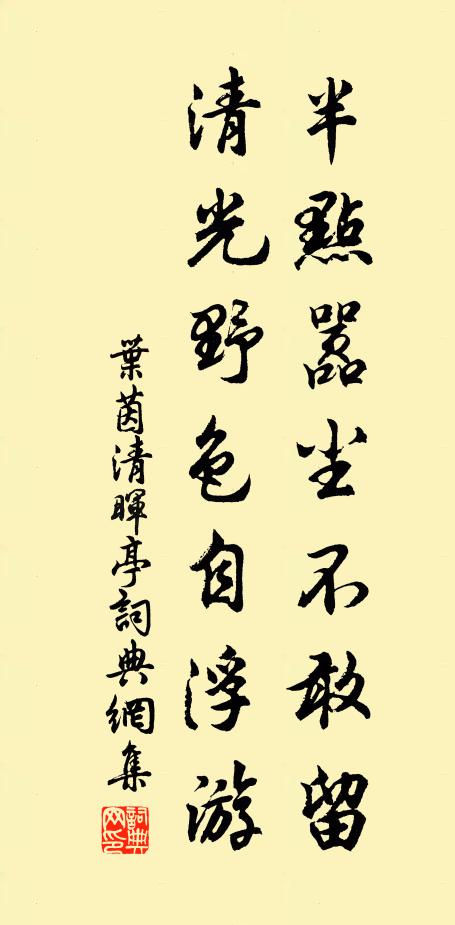 半點囂尘不敢留
清光野色自浮游
葉茵清暉亭詞典網集
詞典网印